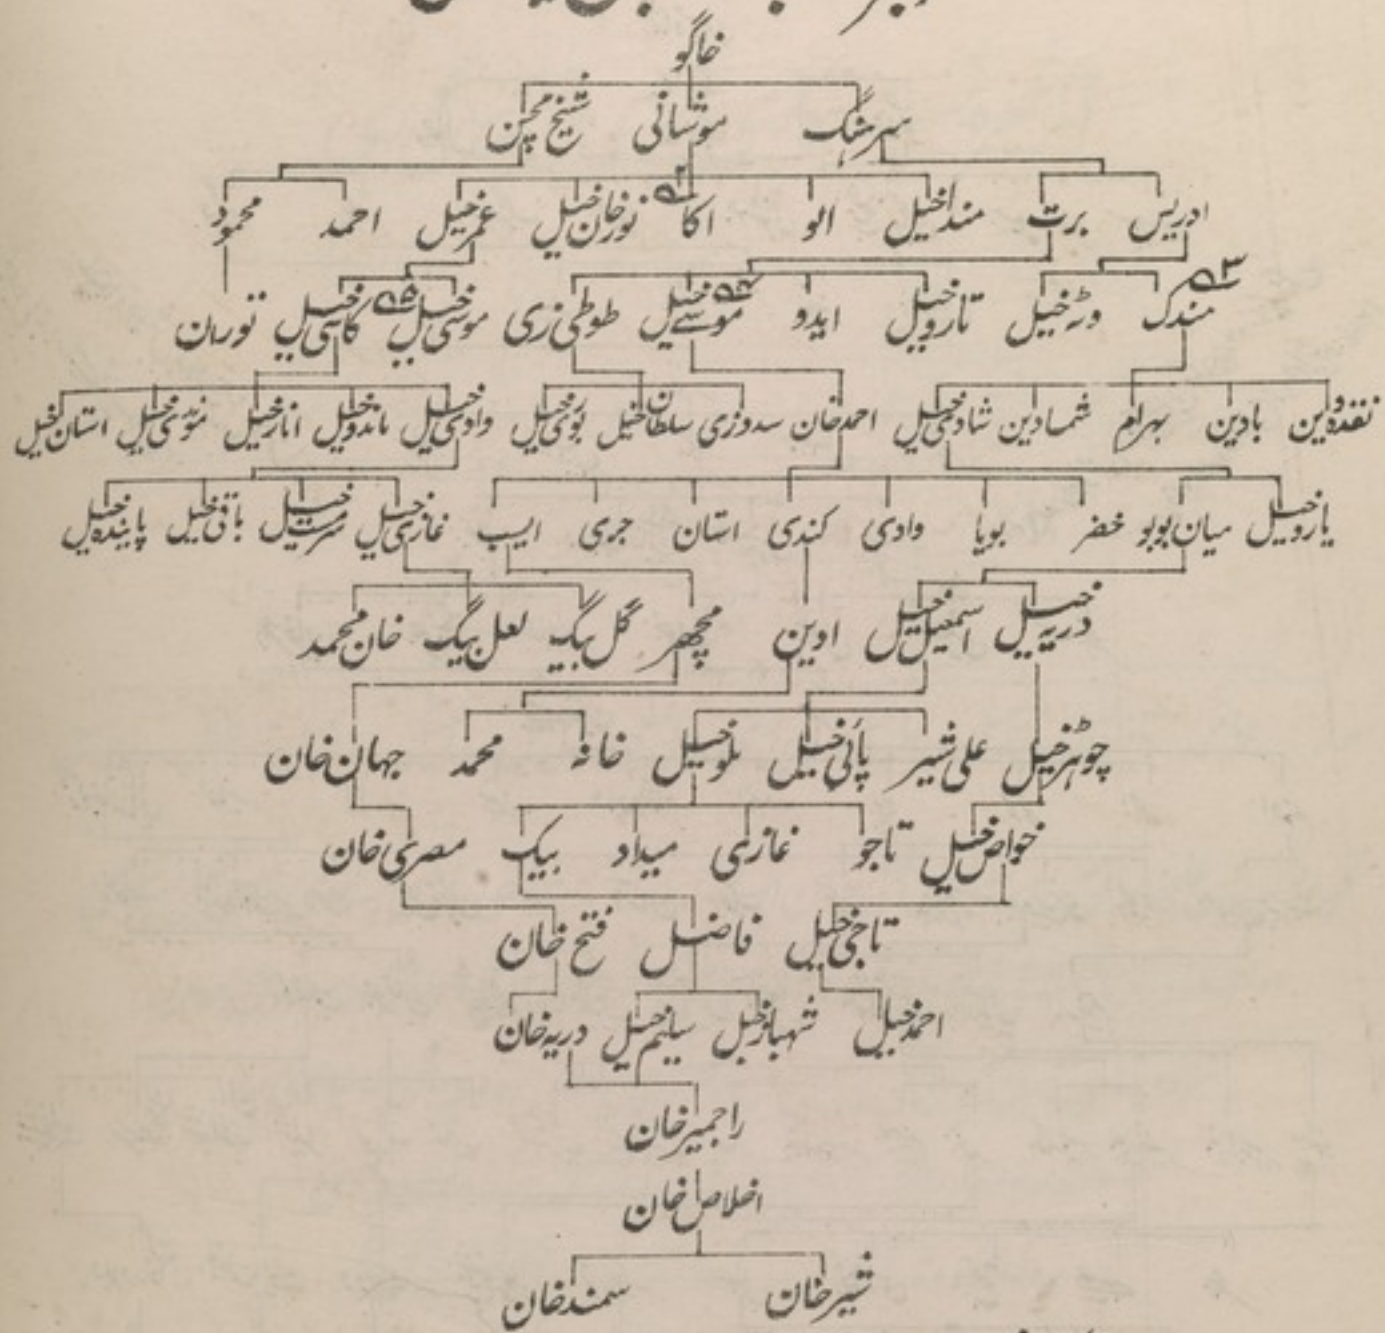 خاگو
سرہنگ موشانی شیخ محچن
ادریس برت منداخیل الو اکا نورخان خیل عمرخیل احمد محمود
مندک وٹہ خیل تاروخیل ایدو موسےٰ خیل طوطی زی موسیٰ خیل کاسی خیل توران
بادین بہرام شمادین شادی خیل احمدخان سدوزی سلطان خیل بوبی خیل وادی خیل ماندوخیل انارخیل استان خیل
یاروخیل میان بوبو خضر بوبا وادی کندی استان جری ایب غازی خیل سرمست خیل باقی خیل پایندہ خیل
دریہ خیل اسمعیل خیل اوین مچھر گل بیگ لعل بیگ خان محمد
چوہڑخیل علی شیر پائی خیل بلوخیل خانہ محمد جہان خان
خواص خیل تاجو غازی میداد بیک مصری خان
تاجی خیل فاضل فتح خان
احمدخیل شہبازخیل سیلیم خیل دریہ خان
راجمیرخان
اخلاص خان
شیرخان سمندخان